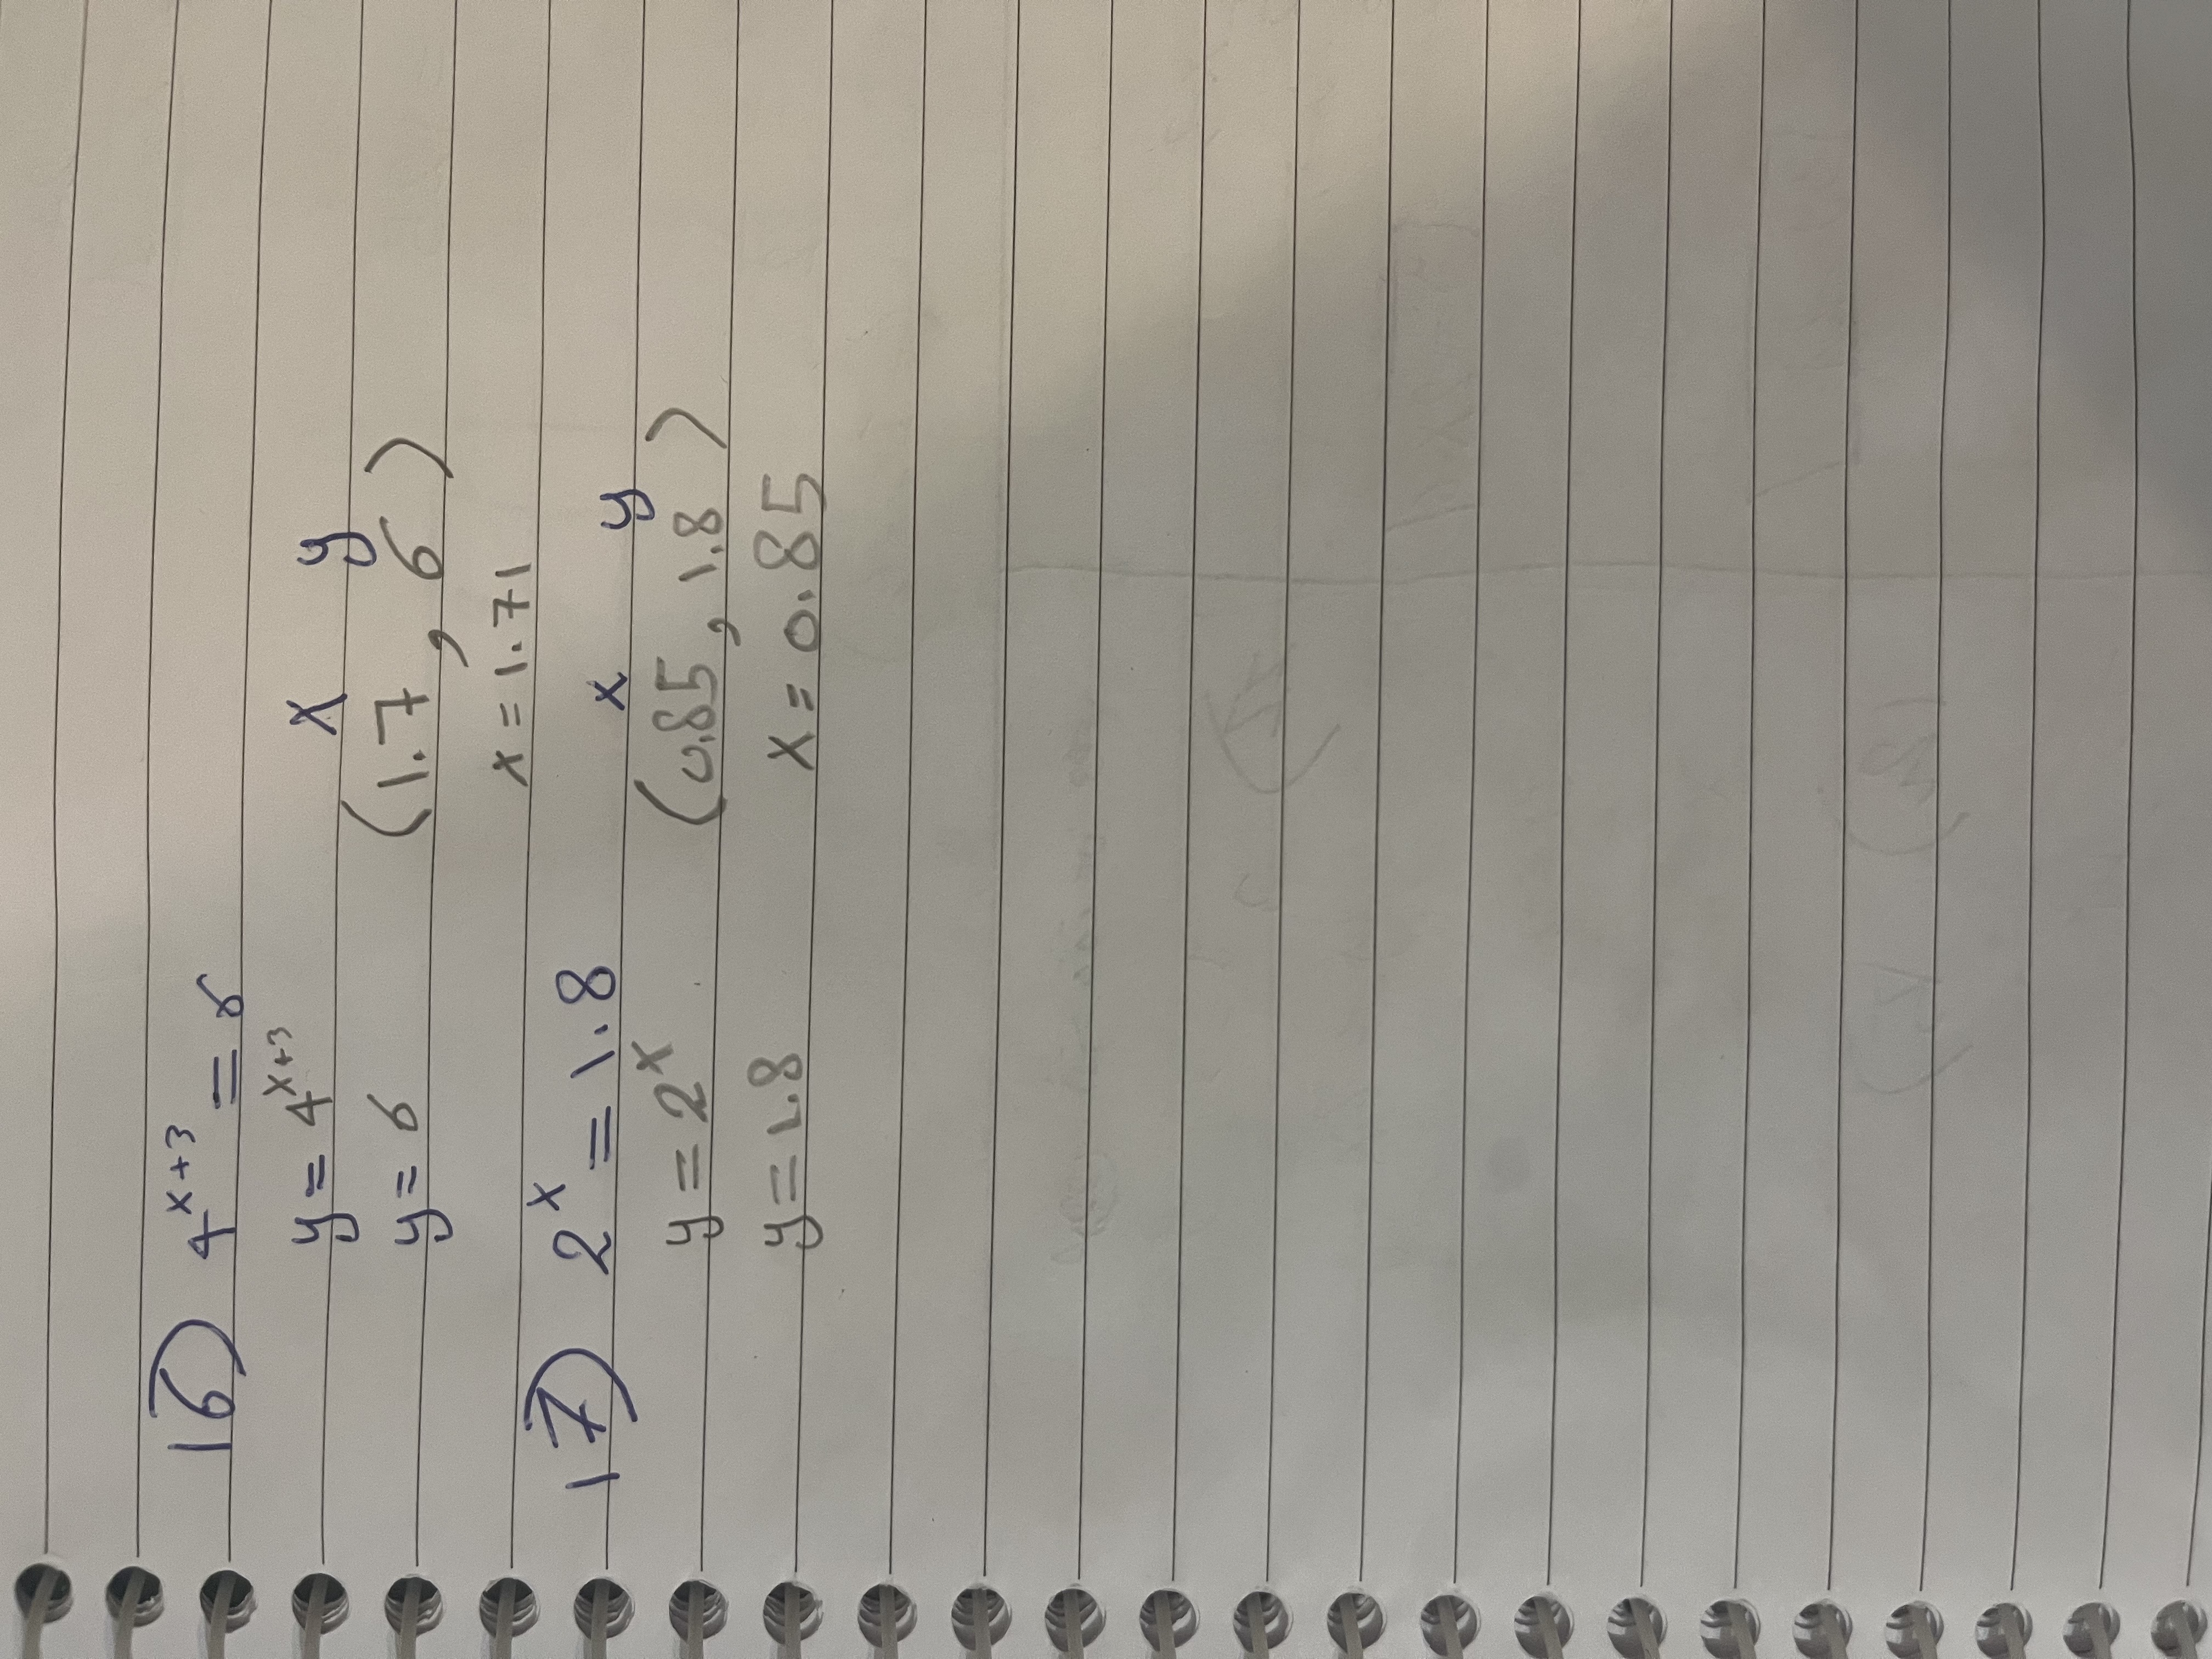 16) 4^x+3 = 6
y = 4^x+3
x y
y = 6 (1.7, 6)
x = 1.71
17) 2^x = 1.8
x y
y = 2^x (0.85, 1.8)
y = 1.8 x = 0.85